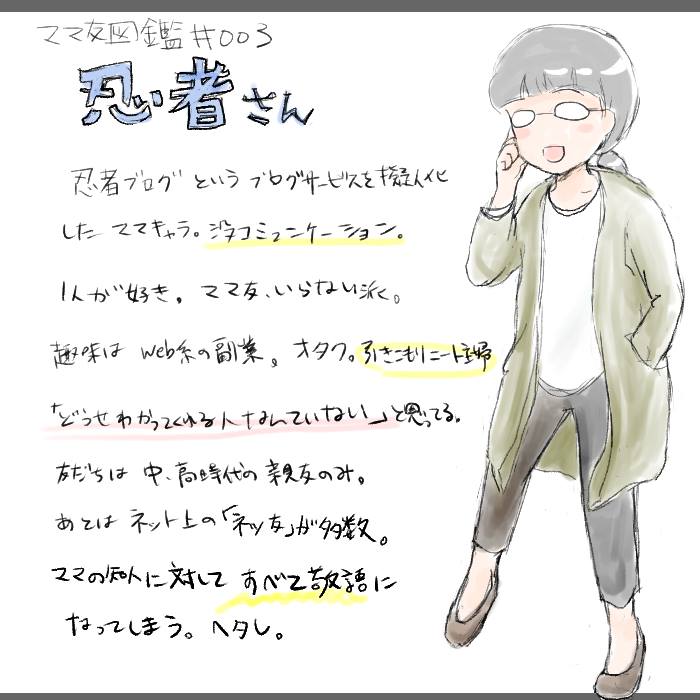 ママ友図鑑#003
忍者さん
忍者ブログというブログサービスを擬人化
したママキャラ。没コミュニケーション。
1人が好き。ママ友、いらない派。
趣味はweb系の副業。オタク。引きこもりニート主婦
「どうせわかってくれる人なんていない」と思ってる。
友だちは中、高時代の親友のみ。
あとはネット上の「ネッ友」が多数。
ママの知人に対してすべて敬語に
なってしまう。ヘタレ。